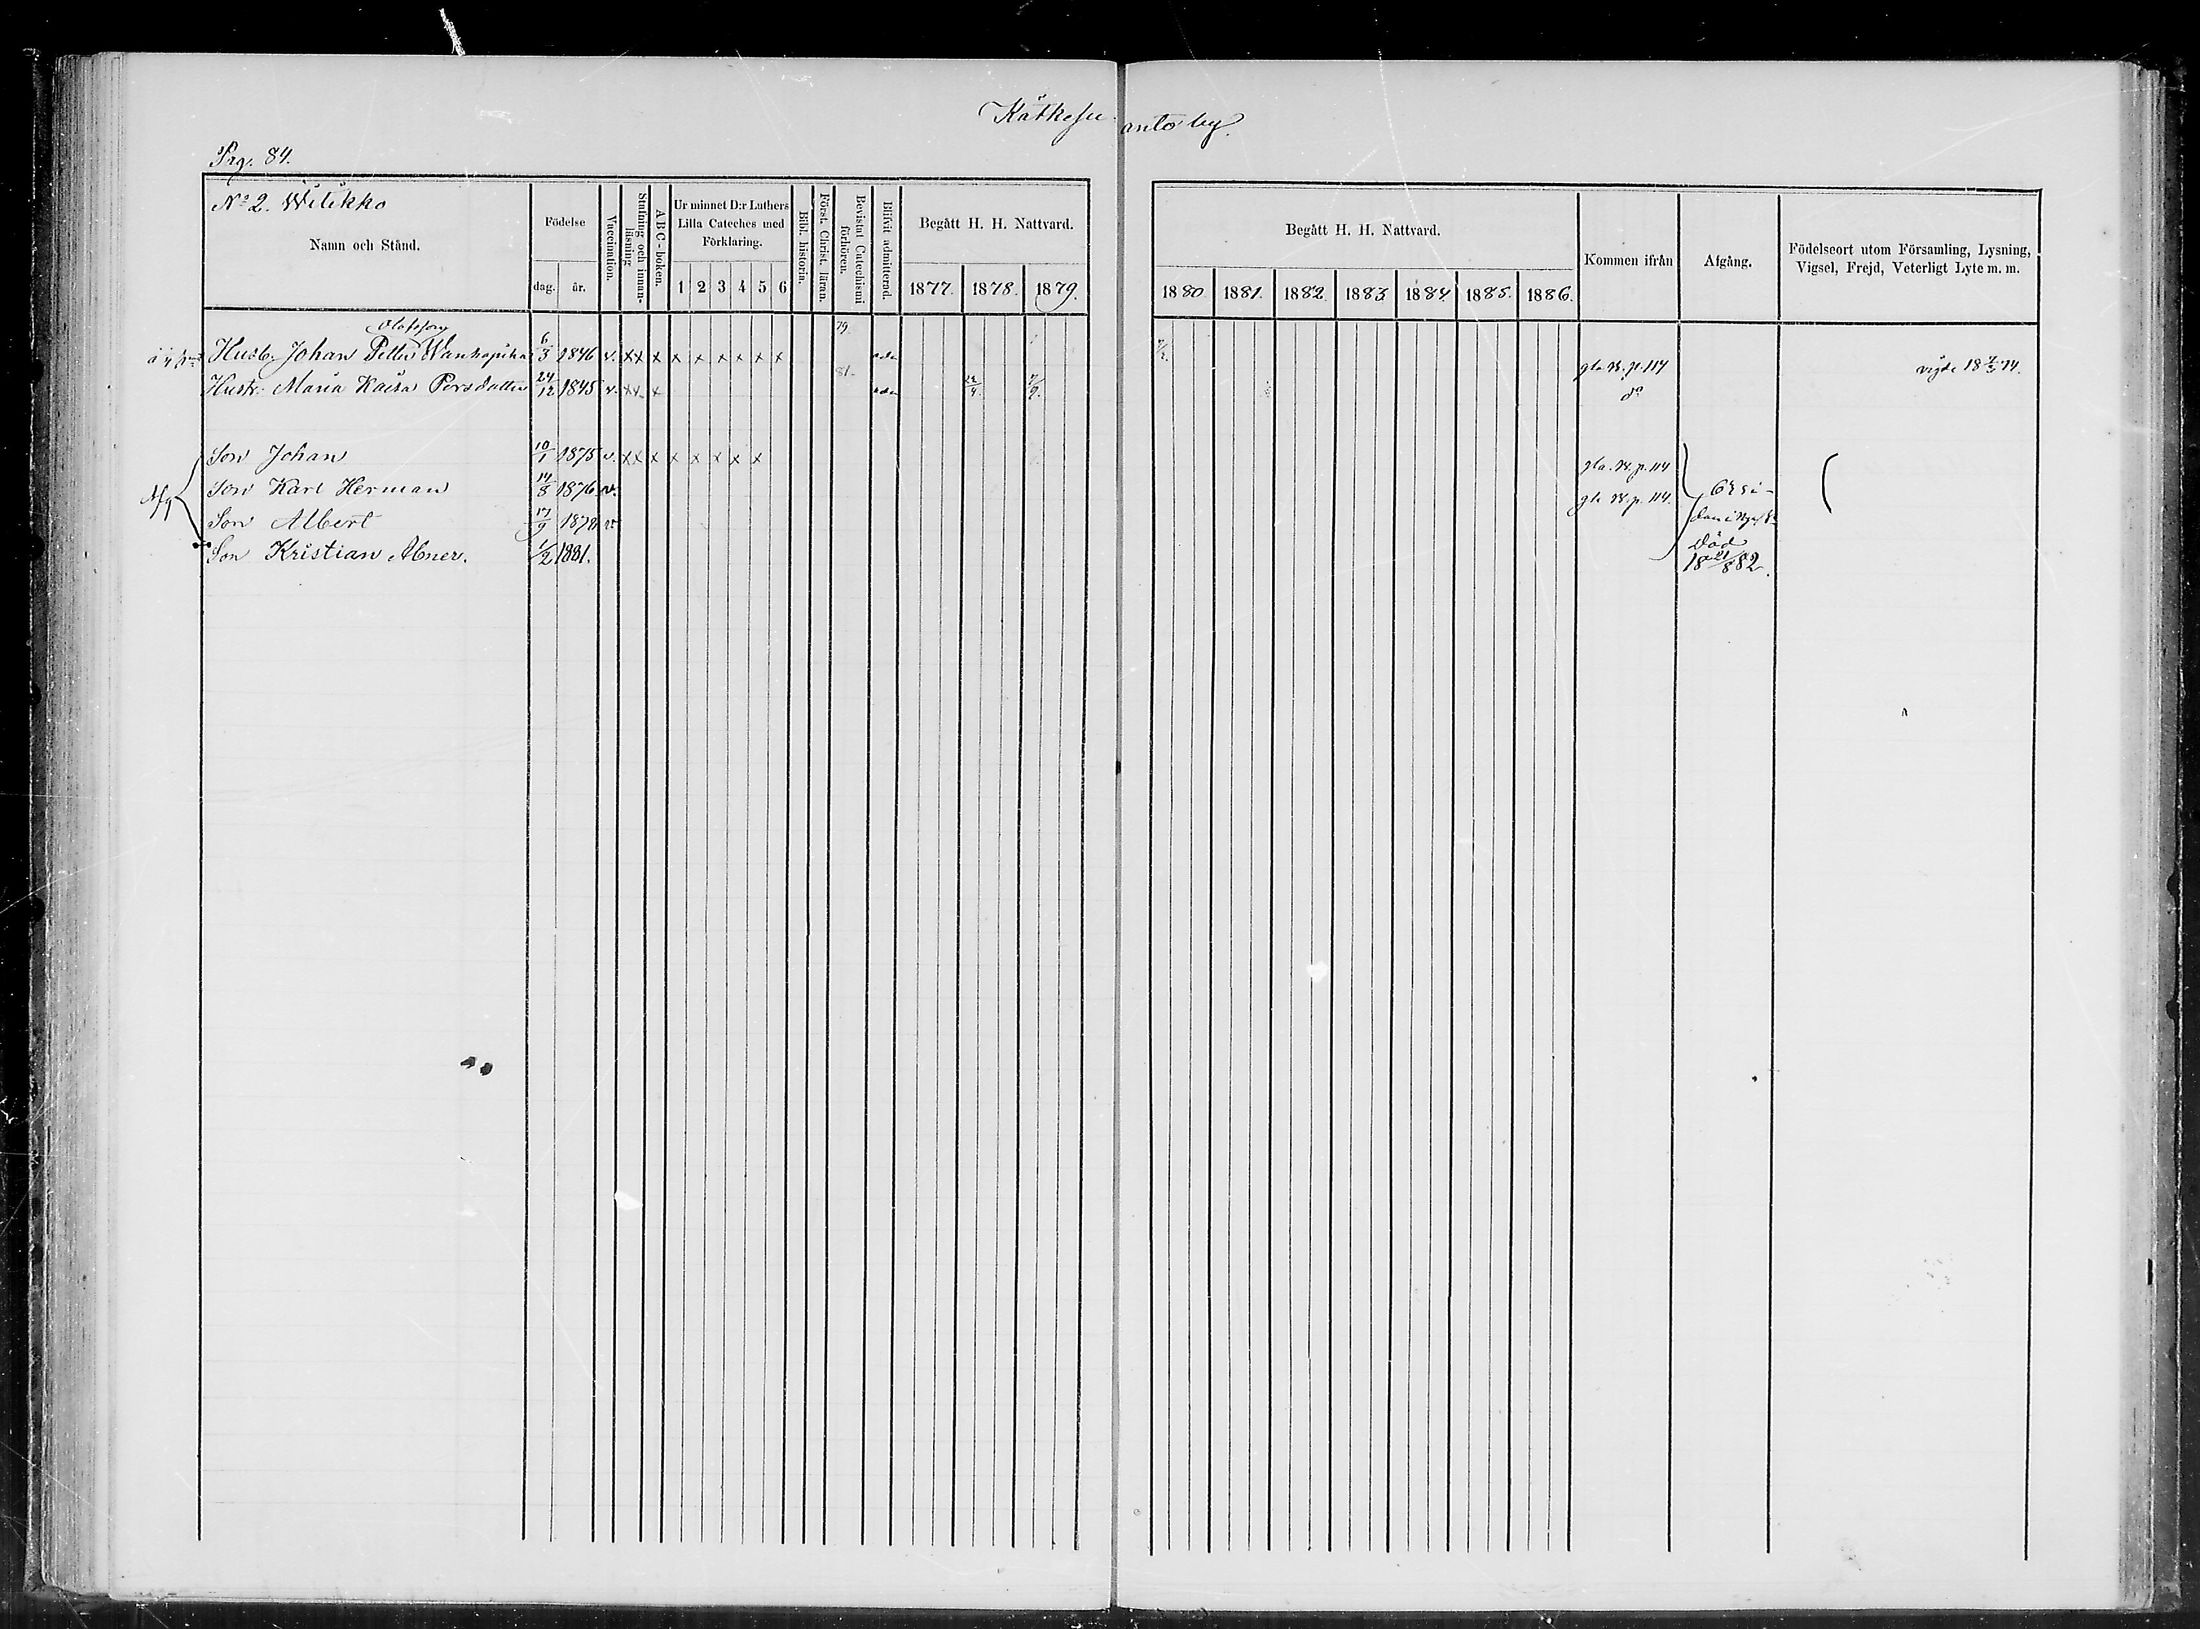 Kätkesu anto by.
Pag. 84.
No 2. Wilikko
Namn och Stånd.
Födelse
dag. år.
Vaccination.
Stafning och innanläsning
ABC-boken.
Ur minnet D:r Luthers Lilla Cateches med Förklaring.
1 2 3 4 5 6
Bibl. historia.
Först. Christ. läran.
Bevistat Catechismi förhören.
Blifvit admitterad.
Begått H. H. Nattvard.
1877. 1878. 1879.
Begått H. H. Nattvard.
1880. 1881. 1882. 1883. 1884. 1885. 1886.
Kommen ifrån
Afgång.
Födelseort utom Församling, Lysning, Vigsel, Frejd, Veterligt Lyte m. m.
Olofsson 79.
Husb. Johan Petter Wanhapiha 6/3 1846 v. xx x x x x x x x adm 7/2. gla B. p. 114 vigde 18 74.
81.
Hustr. Maria Kaisa Persdotter 24/12 1845 v. xx x adm 22/4. 7/9. do
Son Johan 10/1 1875 v. xx x x x x x x gla. B. p. 114
Afg
Son Karl Herman 14/8 1876 v. gla B. p. 114.
Son Albert 17/9 1878 v
Son Kristian Abner. 1/2 1881. Död 18 21/8 82.